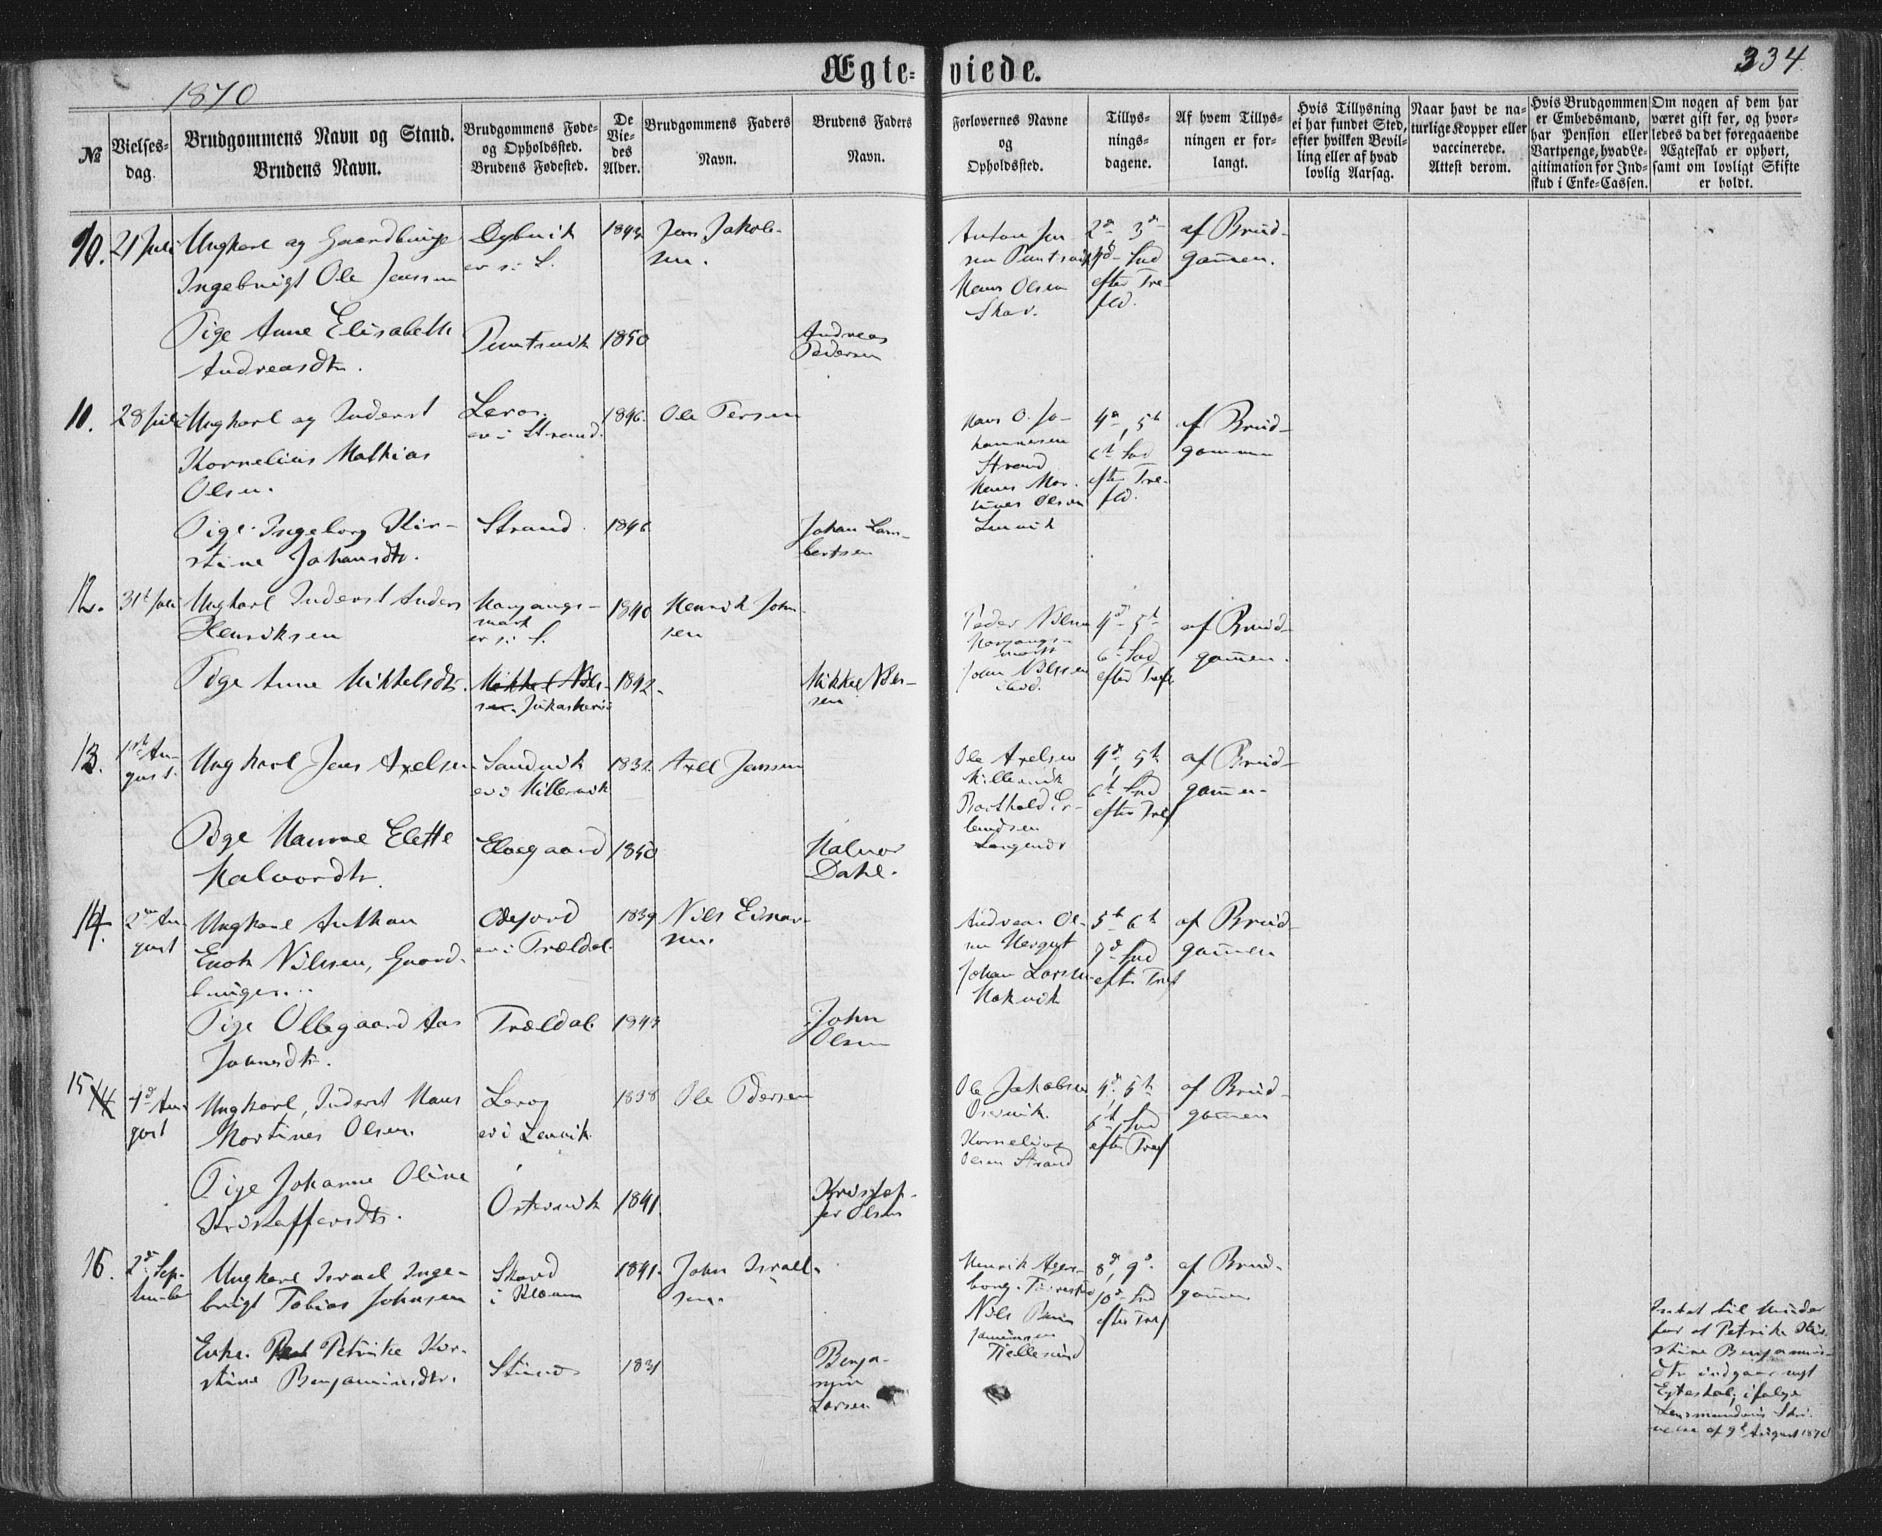 1870
Ægteviede.
334
№
Vielsesdag.
Brudgommens Navn og Stand.
Brudens Navn.
Brudgommens Føde-
og Opholdssted.
Brudens Fødested.
De
Vie-
des
Alder.
Brudgommens Faders
Navn.
Brudens Faders
Navn.
Forlovernes Navne
og
Opholdssted.
Tillys-
nings-
dagene.
Af hvem Tillys-
ningen er for-
langt.
Hvis Tillysning
ei har fundet Sted,
efter hvilken Bevil-
ling eller af hvad
lovlig Aarsag.
Naar havt de na-
turlige Kopper eller
vaccinerede.
Attest derom.
Hvis Brudgommen
er Embedsmand,
har Pension eller
Vartpenge, hvad Le-
gitimation for Ind-
skud i Enke-Cassen.
Om nogen af dem har
været gift før, og hvor-
ledes da det foregaaende
Ægteskab er ophørt,
samt om lovligt Skifte
er holdt.
10.
21 Juli
Ungkarl og Gaardbruger
Ingebrigt Ole Jenssen
Dybvik
1843
Jens Jakob-
sen.
Anton Jen-
sen
Hans Olsen
Skar.
2den 3de
Snd
efter Tre-
fld.
af Brud-
gommen.
Pige Anne Elisabeth
Andreasdtr.
1850
Andreas
Pedersen
11.
28 Juli
Ungkarl og Inderst
Kornelius Mathias
Olsen.
Leros.
er i Strand.
1846.
Ole Persen
Hans O. Jo-
hannesen
Strand
Hans Mar-
tines Olsen
Lenvik
4de, 5te
6te Snd
efter Tre-
fld.
af Brud-
gommen
Pige Ingeborg Kir-
stine Johansdtr.
Strand.
1846
Johan Lam-
bertsen
12.
31te Juli
Ungkarl Inderst Anders
Henriksen
Harjangs-
mark
1840
Henrik John-
sen
Peder Nilsen
Harjangs-
mark
John Nilssen
ibid.
4de 5te
6te Snd
efter Tref
af Brud-
gommen.
Pige Anne Mikkelsdtr.
Mikkel Nils-
sen. Jukaskervi
1842.
Mikkel Nils-
sen
13.
1ste Au-
gust.
Ungkarl Jens Axelsen
Sandvik
1832
Axel Jenssen
Ole Axelsen
Barthold Er-
lendsen
4de, 5te
6te Snd
efter Tref
af Brud-
gommen
Pige Hanne Elette
Halvordtr.
Elvegaard
1850
Halvor
Dahl.
14.
2den Au-
gust
Ungkarl Anthon
Enok Nilssen, Gaard-
bruger
er i Trældal
1839
Nils Einar-
sen.
Andreas Ol-
sen
Johan Larsen
5te 6te
Snd
efter Tref
af Brud-
gommen
Pige Ollegaard Aas
Johnsdtr.
Trældal
1843
John
Olsen
15
14
4de Au-
gust
Ungkarl, Inderst Hans
Martines Olsen.
Leros
er i Lenvik.
1838
Ole Pedersen
Ole Jakobsen
Østervik.
Kornelius
Olsen Strand
4de, 5te
6te Snd
efter Tref
af Brud-
gommen
Pige Johanne Oline
Kristoffersdtr.
Østervik
1841
Kristof-
fer Olsen
16.
2den Sep-
tember
Ungkarl Israel Inge-
brigt Tobias Johnsen
1841.
John Israel-
sen.
Henrik Ager-
borg.
Nils Ben-
jaminsen
Tjellesund
8de, 9de
10de Snd
efter Tref
af Brud-
gommen
Enke. Petrike Kir-
stine Benjaminsdtr.
1831
Benja-
min
Larsen
Intet til Hinder
for at Petrike Kir-
stine Benjamins-
dtr indgaar nyt
Egteskab, ifølge
Lensmandens Skri-
velse af 9de August 1870